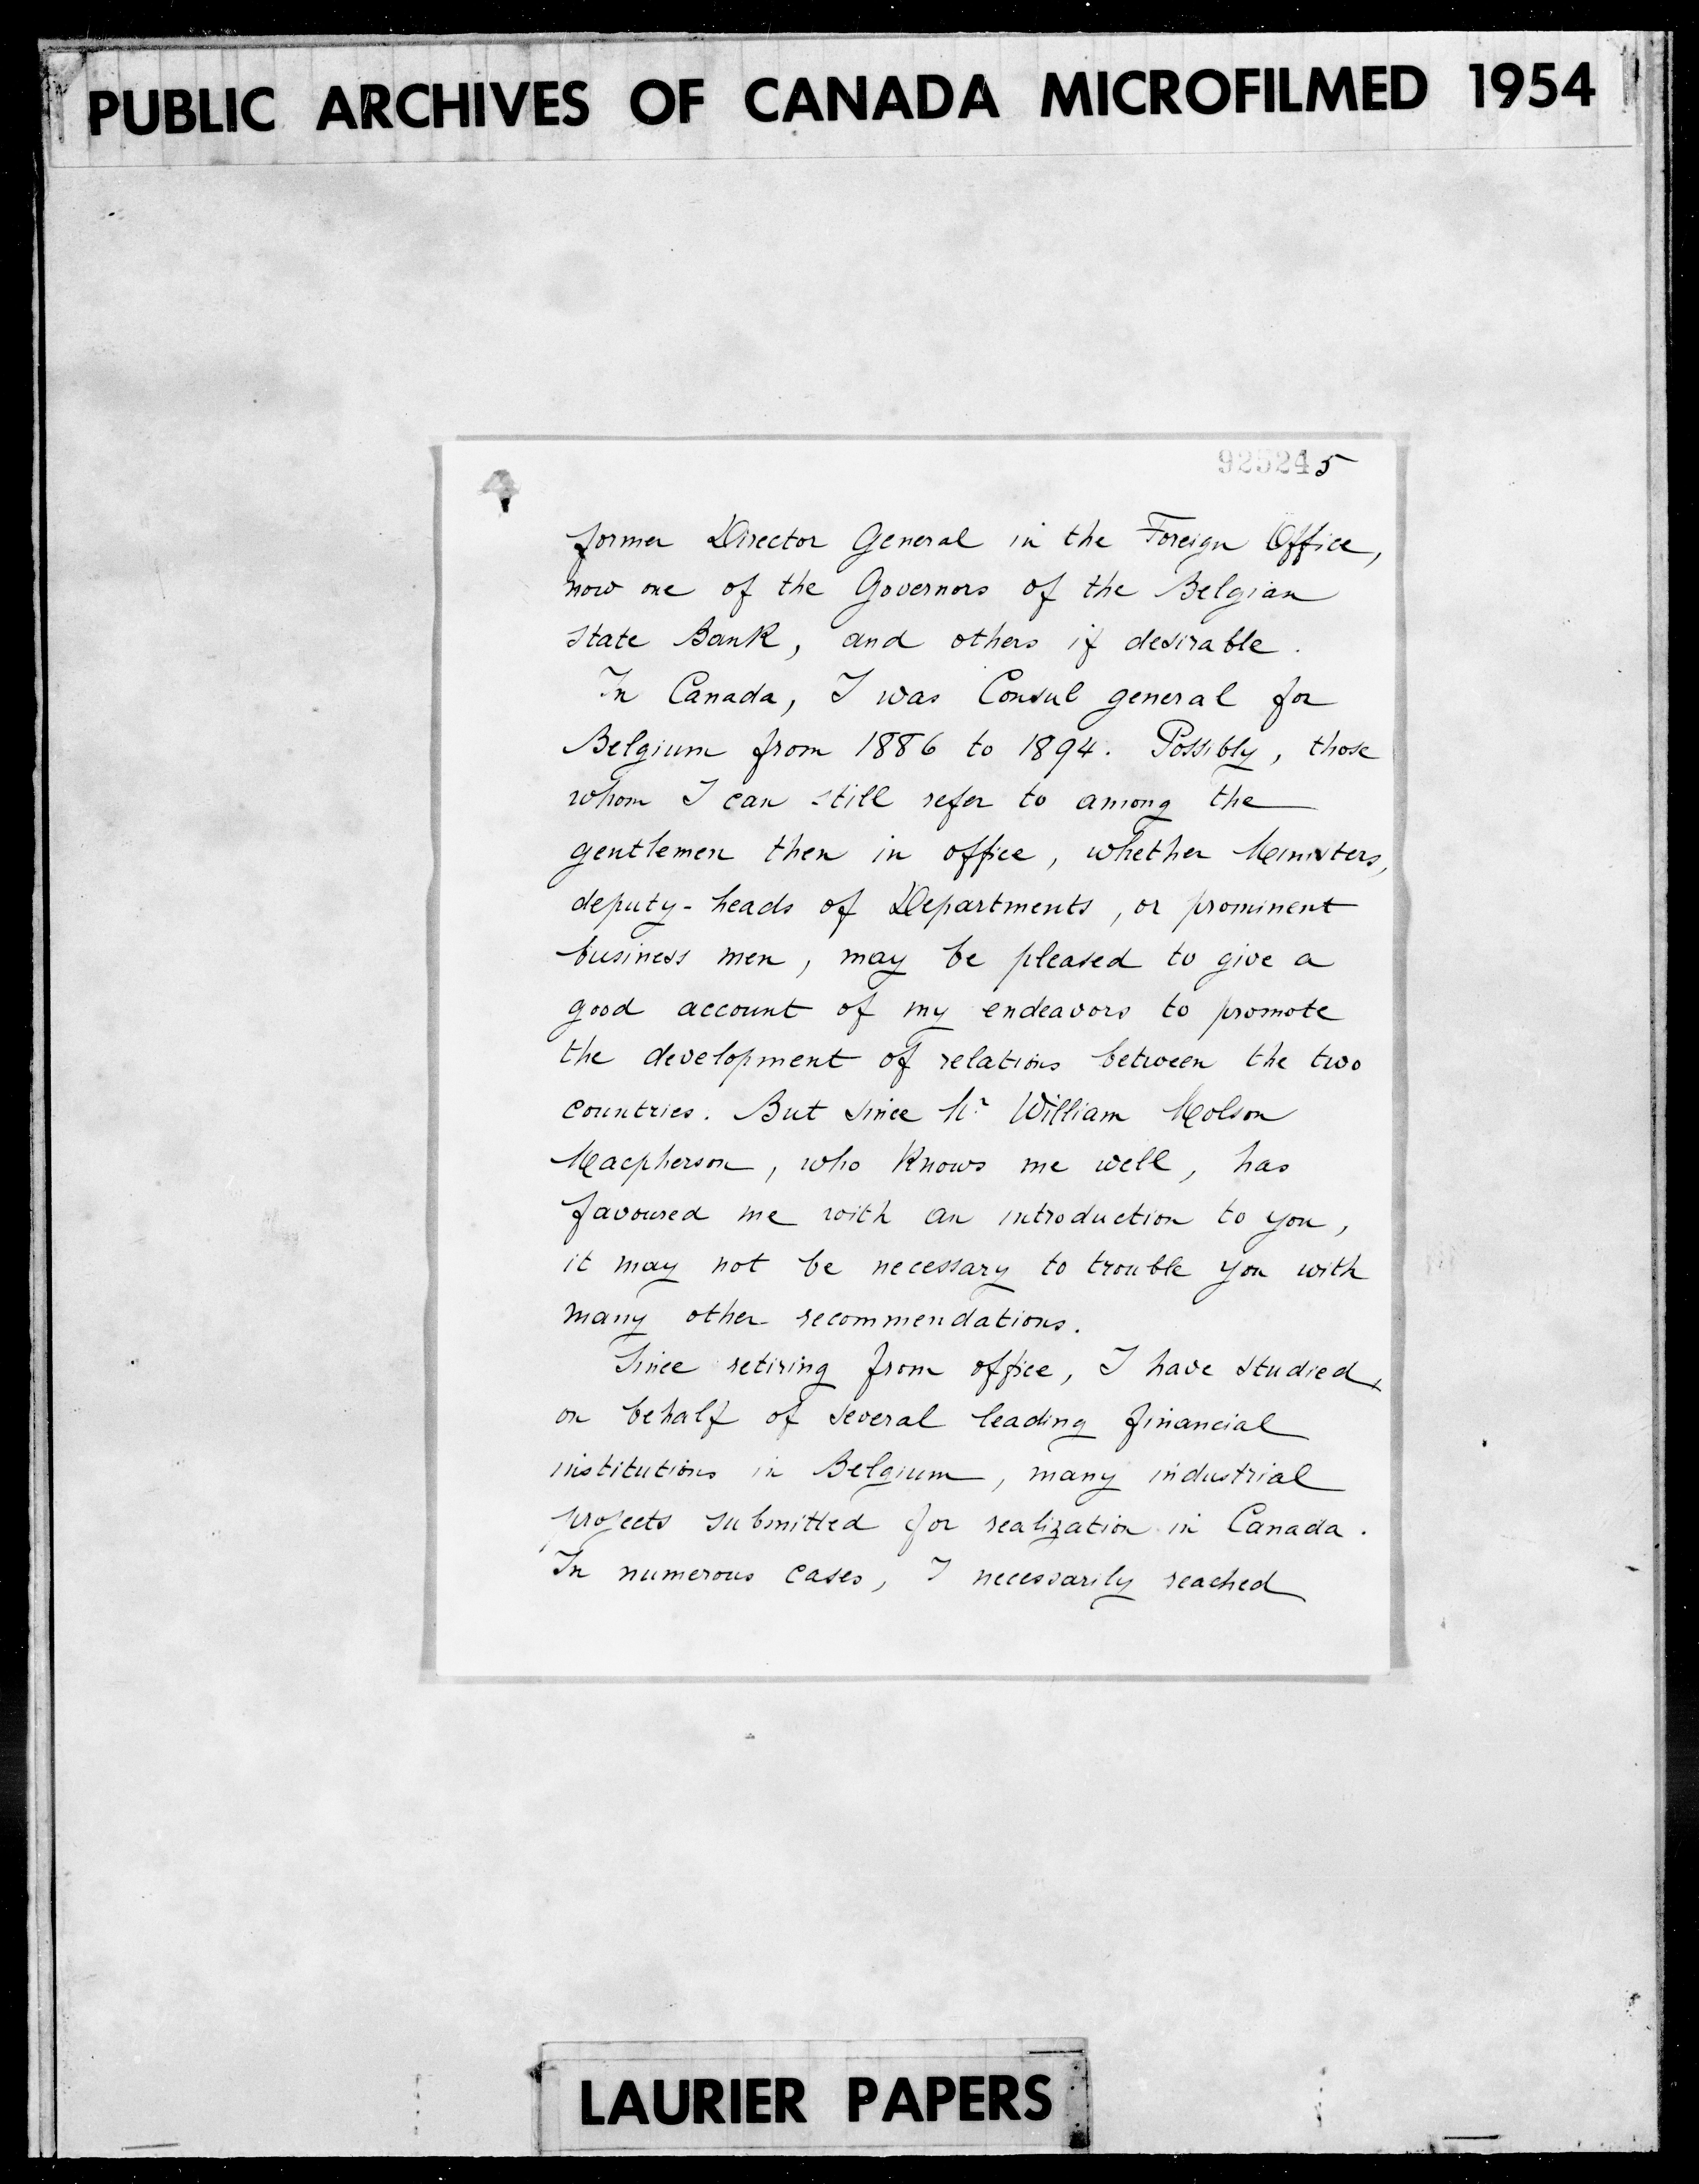 PUBLIC ARCHIVES OF CANADA MICROFILMED 1954
925245
former Director General in the Foreign Office,
now one of the Governors of the Belgian
State Bank, and others if desirable.
In Canada, I was Consul general for
Belgium from 1886 to 1894. Possibly, those
whom I can still refer to among the
gentlemen then in office, whether Ministers,
deputy-heads of Departments, or prominent
business men, may be pleased to give a
good account of my endeavors to promote
the development of relations between the two
countries. But since Mr William Molson
Macpherson, who knows me well, has
favoured me with an introduction to you,
it may not be necessary to trouble you with
many other recommendations.
Since retiring from office, I have studied,
on behalf of several leading financial
institutions in Belgium, many industrial
projects submitted for realization in Canada.
In numerous cases, I necessarily reached
LAURIER PAPERS